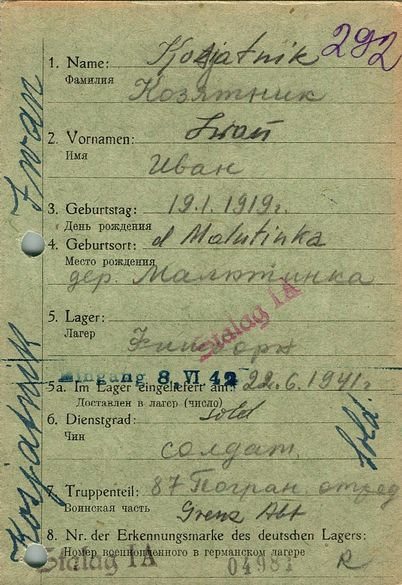 292
1. Name: Kosjatnik
Фамилия
Козятник
2. Vornamen: Iwan
Имя
Иван
3. Geburtstag: 19.1.1919г.
День рождения
4. Geburtsort: d Malutinka
Место рождения
дер. Малютинка
5. Lager: Stalag IA
Лагер
Eingang 8. VI. 42
5a. Im Lager eingeliefert am: 22.6.1941г
Доставлен в лагер (число)
6. Dienstgrad: Sold
Чин
солдат
7. Truppenteil: 87 Погран. отряд
Воинская часть
Grenz Abt
8. Nr. der Erkennungsmarke des deutschen Lagers:
Номер военнопленного в германском лагере
Stalag IA
04981 R
Kosjatnik Iwan
Sold.